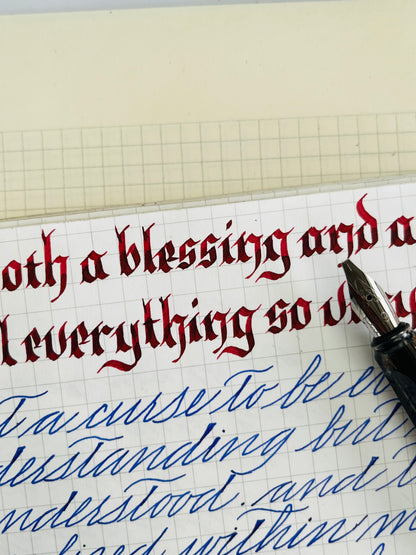 oth a blessing and a
l everything so v
t a curse to be
derstanding but
nderstood. and
lized within m